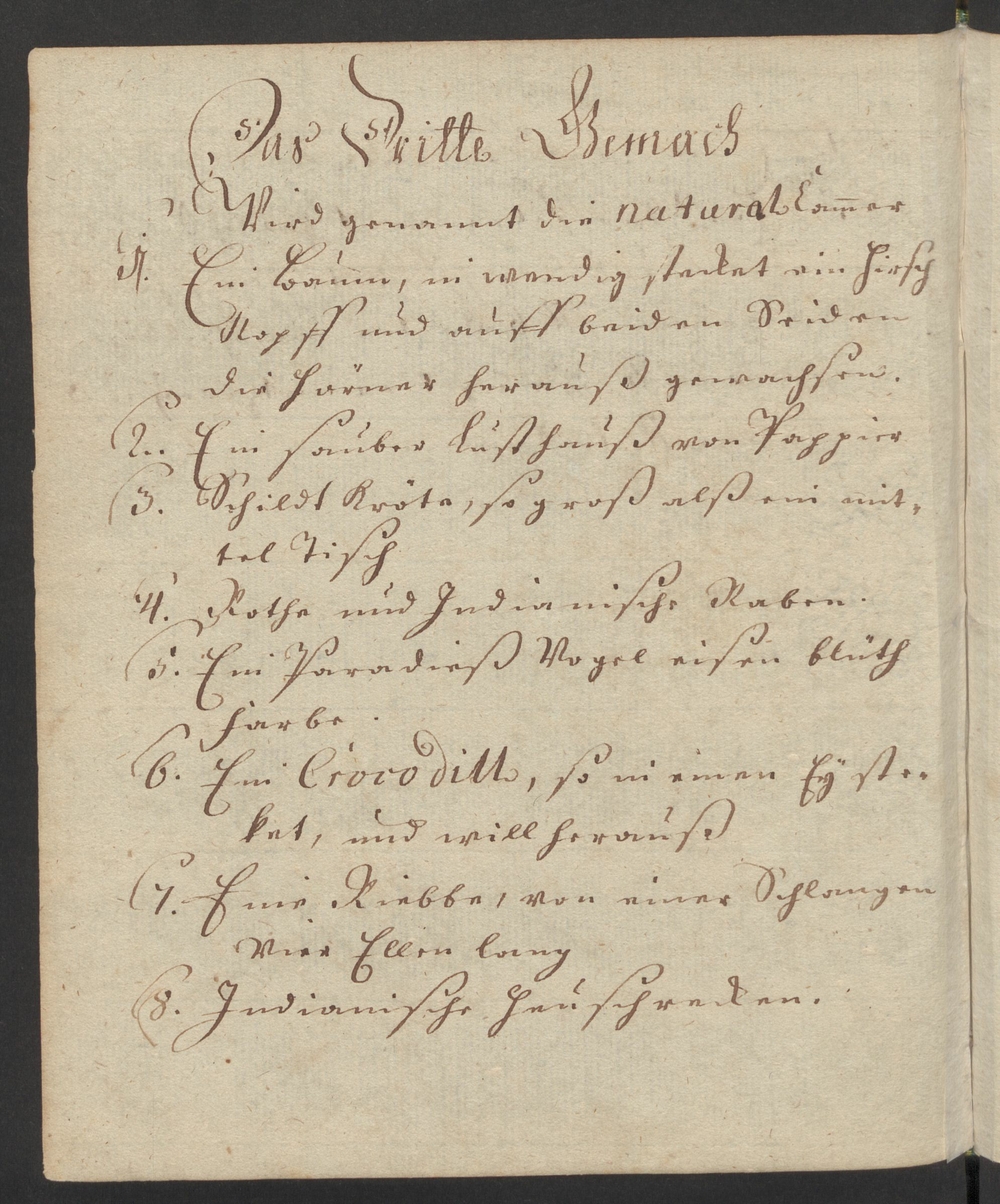 Das Dritte Gemach
Wird genannt die natural Cam̄er
1. Ein Baum, in wendig stecket ein Hirsch
Kopff und auff beiden Seiden
die Hörner herauß gewachsen.
2. Ein sauber Lusthauß von Pappier
3. Schildt Kröte, so groß alß ein mit-
tel Tisch
4. Rothe und Indianische Raben.
5. Ein Paradieß Vogel eisen blüth
farbe.
6. Ein Crocodill, so in einen Eÿ ste-
ket, und will herauß
7. Eine Riebbe, von einer Schlangen
Vier Ellen lang
8. Indianische Heuschrecken.